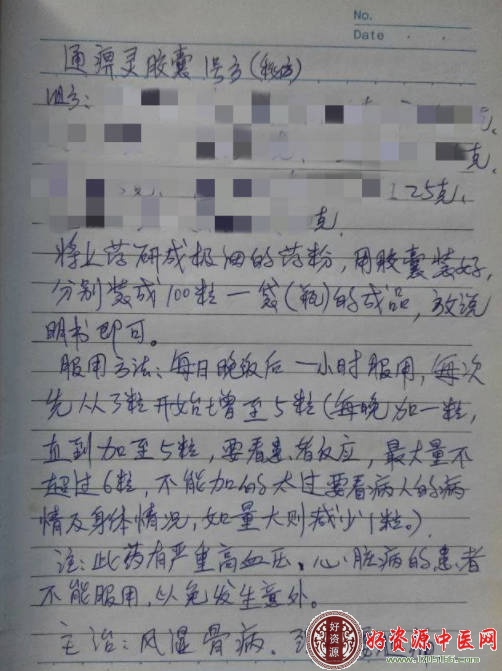 No.
Date
通痹灵胶囊1号方(秘方)
组方:
克、
克、
125克、
克、
将上药研成极细的药粉,用胶囊装好,
分别装成100粒一袋(瓶)的成品,放说
明书即可。
服用方法:每日晚饭后一小时服用,每次
先从3粒开始增至5粒(每晚加一粒,
直到加至5粒,要看患者反应,最大量不
超过6粒,不能加的太过要看病人的病
情及身体情况,如量大则减少1粒。)
注:此药有严重高血压、心脏病的患者
不能服用,以免发生意外。
主治:风湿骨病、
好资源
好资源中医网